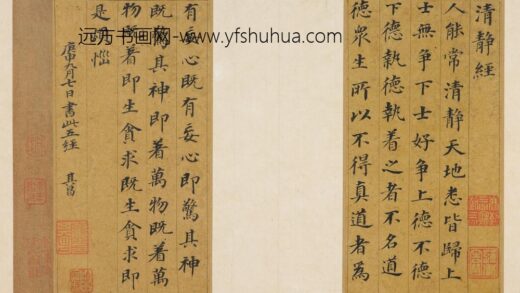 远方书画网-www.yfshuhua.com
清静經
人能常清静天地悉皆歸上
士無争下士好争上德不德
下德執德執着之者不名道
德衆生所以不得真道者為
有妄心既有妄心即驚其神
既驚其神即着萬物既着萬
物既着即生貪求既生貪求即
是煩惱
庚申九月七日書此五經 其昌